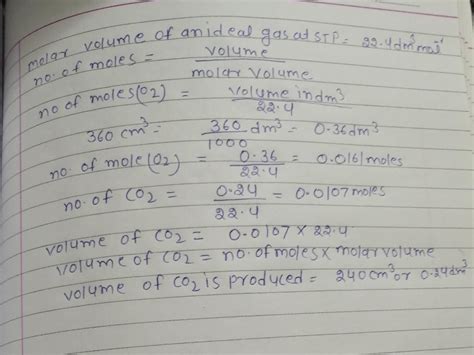 molar volume of an ideal gas at STP = 22.4dm³mol⁻¹
no. of moles = volume / molar volume
no of moles(O2) = volume in dm³ / 22.4
360 cm³ = 360/1000 dm³ = 0.36dm³
no. of mole(O2) = 0.36/22.4 = 0.0161moles
no. of CO2 = 0.24/22.4 = 0.0107moles
volume of CO2 = 0.0107 × 22.4
volume of CO2 = no. of moles × molar volume
volume of CO2 is produced = 240cm³ or 0.24dm³